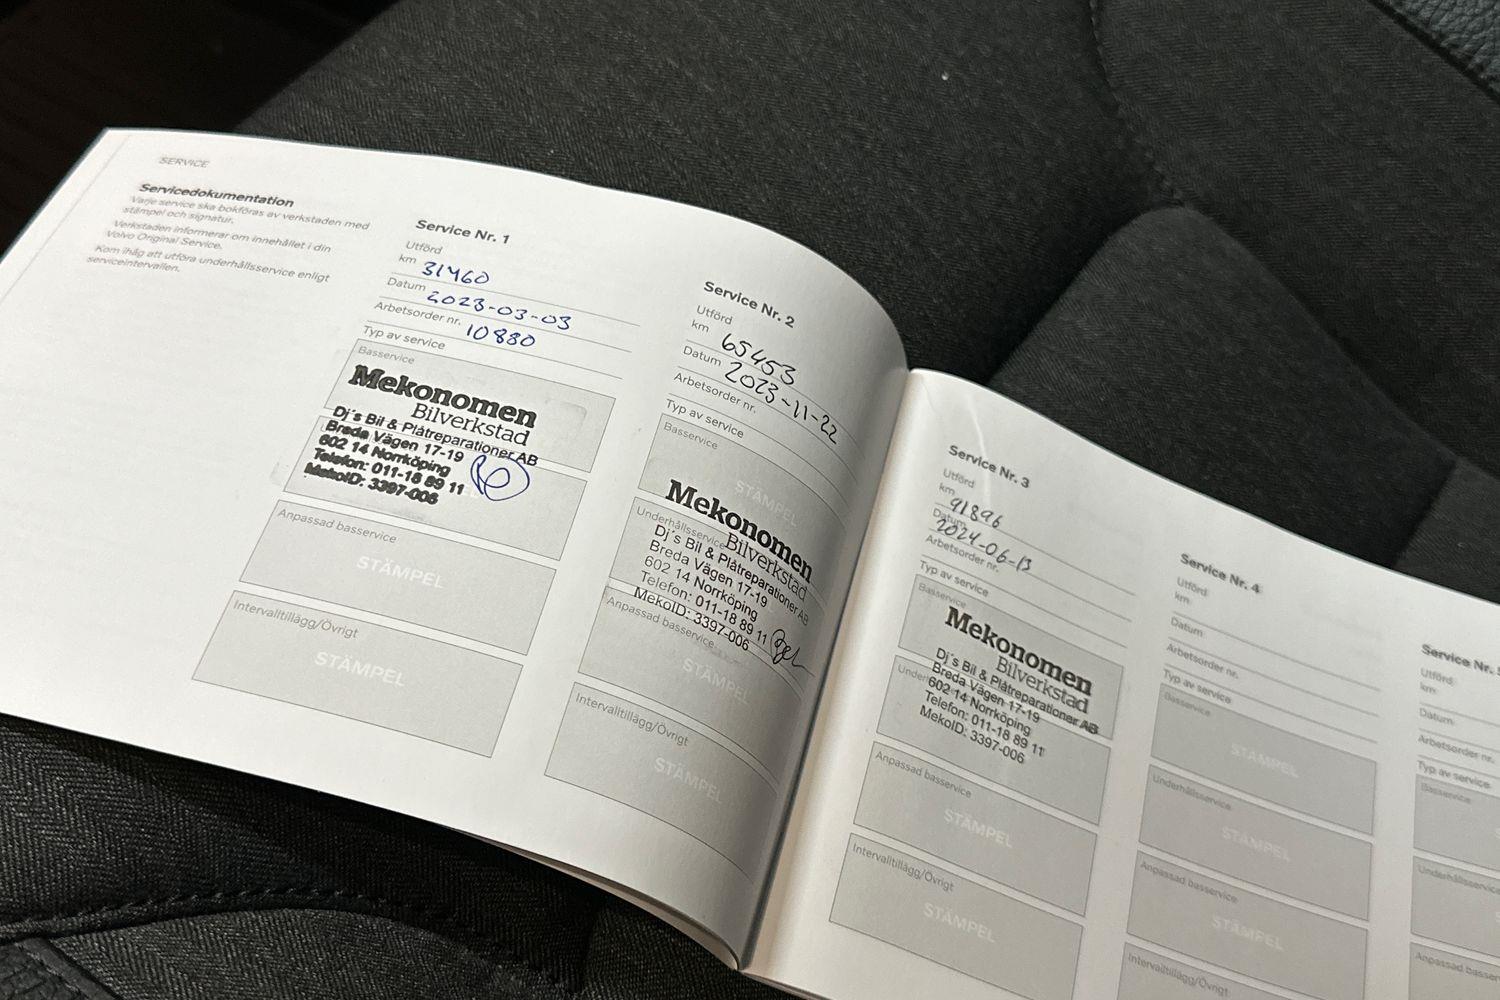 SERVICE
Servicedokumentation
Varje service ska bokföras av verkstaden med
stämpel och signatur.
Verkstaden informerar om innehållet i din
Volvo Original Service.
Kom ihåg att utföra underhållsservice enligt
serviceintervallen.
Service Nr. 1
Utförd
km 31460
Datum 2023-03-03
Arbetsorder nr. 10880
Typ av service
Basservice
Mekonomen
Bilverkstad
Dj´s Bil & Plåtreparationer AB
Breda Vägen 17-19
602 14 Norrköping
Telefon: 011-18 89 11
MekoID: 3397-006
Anpassad basservice
STÄMPEL
Intervalltillägg/Övrigt
STÄMPEL
Service Nr. 2
Utförd
km 65453
Datum 2023-11-22
Arbetsorder nr.
Typ av service
Basservice
STÄMPEL
Mekonomen
Underhållsservice
Bilverkstad
Dj´s Bil & Plåtreparationer AB
Breda Vägen 17-19
602 14 Norrköping
Telefon: 011-18 89 11
MekoID: 3397-006
Anpassad basservice
STÄMPEL
Intervalltillägg/Övrigt
STÄMPEL
Service Nr. 3
Utförd
km 91896
Datum 2024-06-13
Arbetsorder nr.
Typ av service
Basservice
Mekonomen
Bilverkstad
Dj´s Bil & Plåtreparationer AB
Breda Vägen 17-19
602 14 Norrköping
Telefon: 011-18 89 11
MekoID: 3397-006
Anpassad basservice
STÄMPEL
Intervalltillägg/Övrigt
STÄMPEL
Service Nr. 4
Utförd
km
Datum
Arbetsorder nr.
Typ av service
Basservice
STÄMPEL
Underhållsservice
STÄMPEL
Anpassad basservice
STÄMPEL
Intervalltillägg/Övrigt
Service Nr.
Utförd
km
Datum
Arbetsorder nr.
Typ av service
Basservice
Underhållsservice
Anpassad basservice